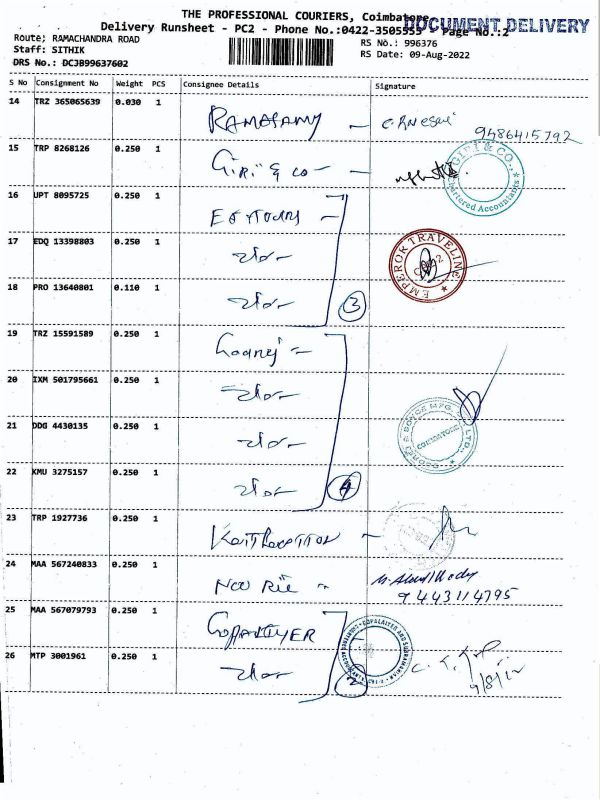 THE PROFESSIONAL COURIERS, Coimbatore
DOCUMENT DELIVERY
Delivery Runsheet - PC2 - Phone No.:0422-3505555 Page No.:2
Route; RAMACHANDRA ROAD
RS No.: 996376
Staff: SITHIK
RS Date: 09-Aug-2022
DRS No.: DCJB99637602
S No Consignment No Weight PCS Consignee Details Signature
14 TRZ 365065639 0.030 1 RAMASAMY
9486415792
15 TRP 8268126 0.250 1 Giri & co
GIRI & CO.,
Chartered Accountants
16 UPT 8095725 0.250 1
17 EDQ 13398803 0.250 1
EMPEROR TRAVELINE
18 PRO 13640801 0.110 1
3
19 TRZ 15591589 0.250 1 Godrej
20 IXM 501795661 0.250 1
21 DDG 4430135 0.250 1
GODREJ & BOYCE MFG. CO. LTD.,
COIMBATORE
22 KMU 3275157 0.250 1
4
23 TRP 1927736 0.250 1
24 MAA 567240833 0.250 1
9443114795
25 MAA 567079793 0.250 1 GOPALIYER
GOPALAIYER AND SUBRAMANIAN
CHARTERED ACCOUNTANTS
26 MTP 3001961 0.250 1
2
9/8/22